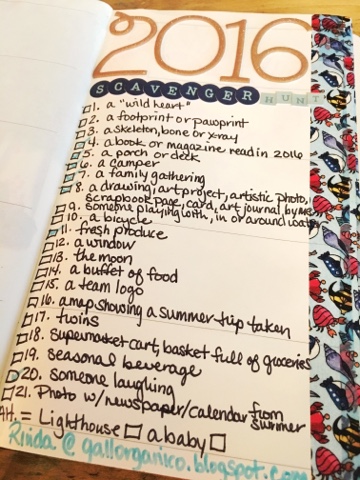 2016
SCAVENGER HUNT
1. a "wild heart"
2. a footprint or pawprint
3. a skeleton, bone or x-ray
4. a book or magazine read in 2016
5. a porch or deck
6. a camper
7. a family gathering
8. a drawing, art project, artistic photo,
scrapbook page, card, art journal by me
9. someone playing with, in or around water
10. a bicycle
11. fresh produce
12. a window
13. the moon
14. a buffet of food
15. a team logo
16. a map showing a summer trip taken
17. twins
18. supermarket cart, basket full of groceries
19. seasonal beverage
20. someone laughing
21. Photo w/newspaper/calendar from
summer
Alt. = Lighthouse a baby
Rinda @ gallorganico.blogspot.com